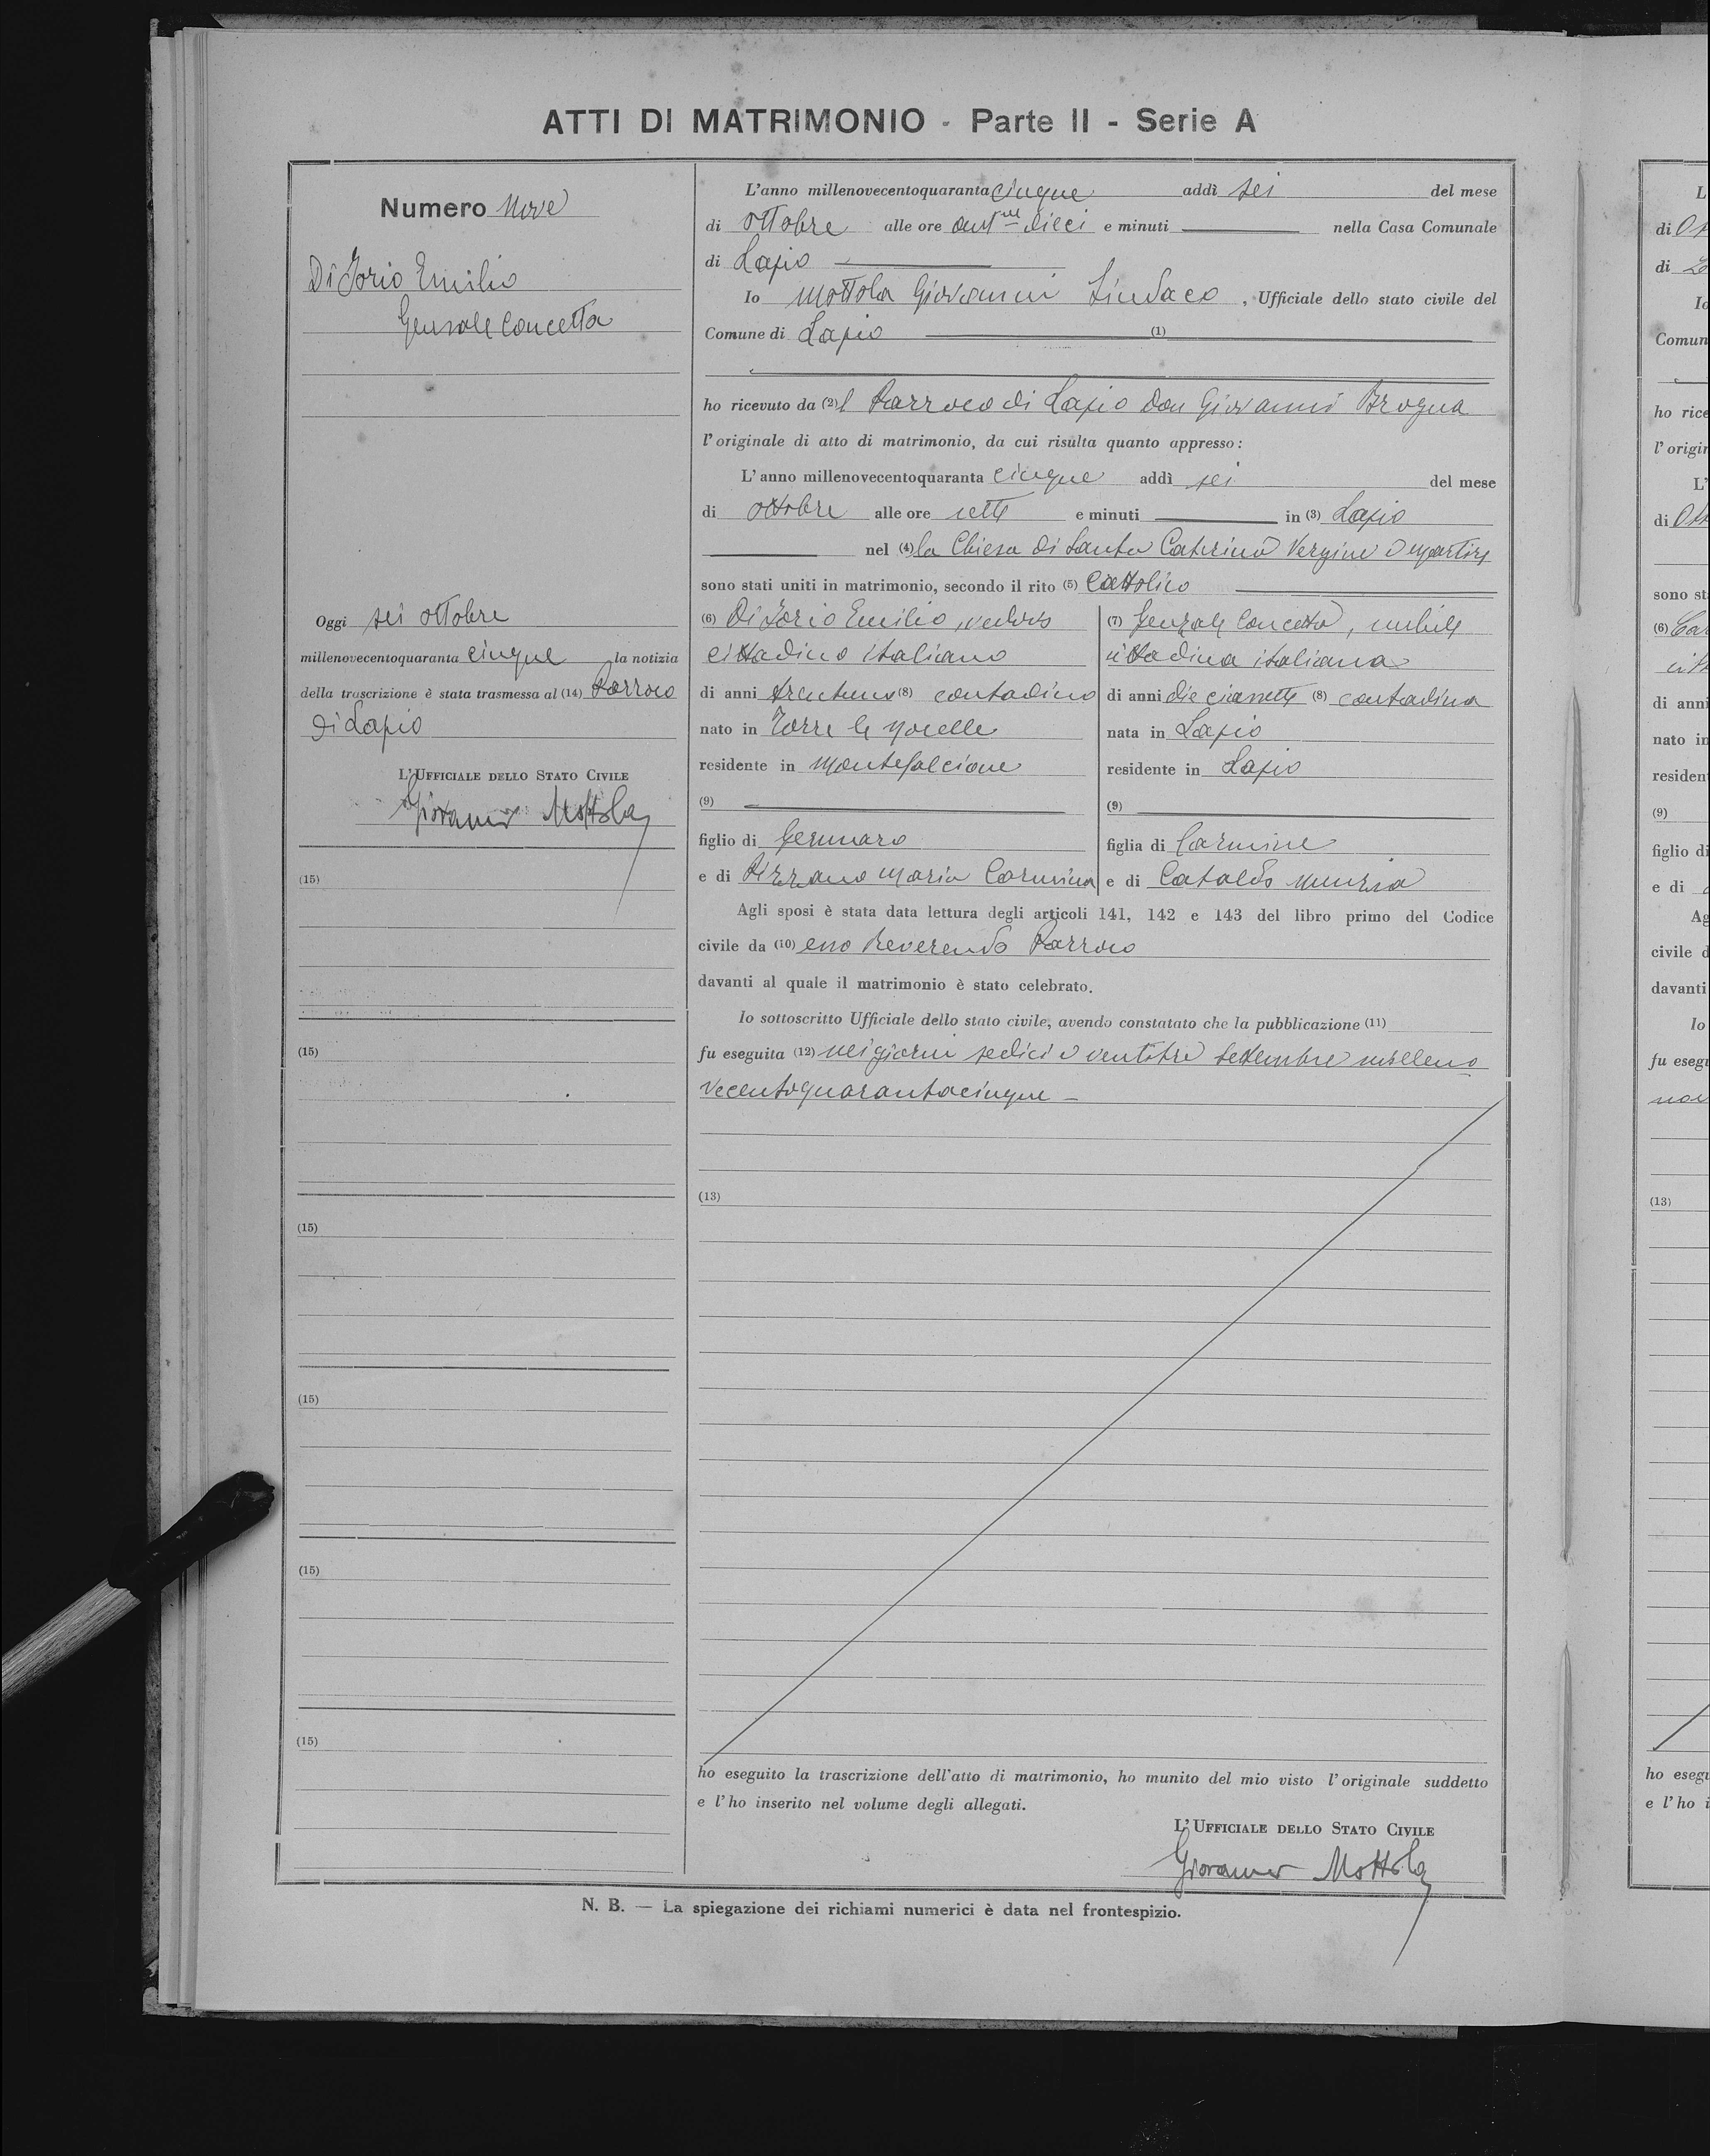 ATTI DI MATRIMONIO - Parte II - Serie A
Numero Nove
Di Iorio Emilio
Genzale Concetta
Oggi sei ottobre
millenovecentoquaranta cinque la notizia
della trascrizione è stata trasmessa al (14) Parroco
di Lapio
L'UFFICIALE DELLO STATO CIVILE
Giovanni Mottola
(15)
(15)
(15)
(15)
(15)
(15)
L'anno millenovecentoquaranta cinque addì sei del mese
di ottobre alle ore antne dieci e minuti nella Casa Comunale
di Lapio
Io Mottola Giovanni Sindaco, Ufficiale dello stato civile del
Comune di Lapio (1)
ho ricevuto da (2) l Parroco di Lapio Don Giovanni Brogna
l'originale di atto di matrimonio, da cui risulta quanto appresso:
L'anno millenovecentoquaranta cinque addì sei del mese
di ottobre alle ore sette e minuti in (3) Lapio
nel (4) la Chiesa di Santa Caterina Vergine e Martire
sono stati uniti in matrimonio, secondo il rito (5) Cattolico
(6) Di Iorio Emilio, vedovo
cittadino italiano
di anni trentuno (8) contadino
nato in Torre le Nocelle
residente in Montefalcione
(9)
figlio di Gennaro
e di Pizzano Maria Carmina
(7) Genzale Concetta, nubile
cittadina italiana
di anni diciannette (8) contadina
nata in Lapio
residente in Lapio
(9)
figlia di Carmine
e di Cataldo Nunzia
Agli sposi è stata data lettura degli articoli 141, 142 e 143 del libro primo del Codice
civile da (10) esso Reverendo Parroco
davanti al quale il matrimonio è stato celebrato.
Io sottoscritto Ufficiale dello stato civile, avendo constatato che la pubblicazione (11)
fu eseguita (12) nei giorni sedici e ventitre settembre milleno
vecentoquarantacinque -
(13)
ho eseguito la trascrizione dell'atto di matrimonio, ho munito del mio visto l'originale suddetto
e l'ho inserito nel volume degli allegati.
L'UFFICIALE DELLO STATO CIVILE
Giovanni Mottola
N. B. — La spiegazione dei richiami numerici è data nel frontespizio.
L
di
di
Io
Comun
ho rice
l'origin
L'
di
sono st
(6)
di anni
nato in
resident
(9)
figlio di
e di
Ag
civile d
davanti
Io
fu esegu
(13)
ho esegu
e l'ho i